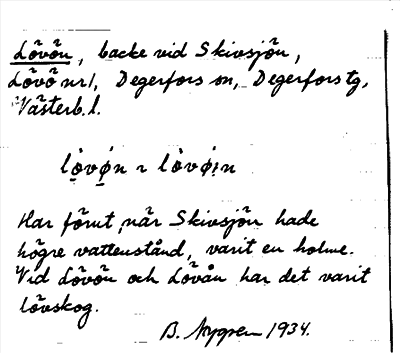 Lövön, backe vid Skivsjön,
Lövö nr 1, Degerfors sn, Degerfors tg,
Västerb. l.
lövǿn ~ lövǿ:n
Har förut, när Skivsjön hade
högre vattenstånd, varit en holme.
Vid Lövön och Lövån har det varit
lövskog.
B. Nygren 1934.